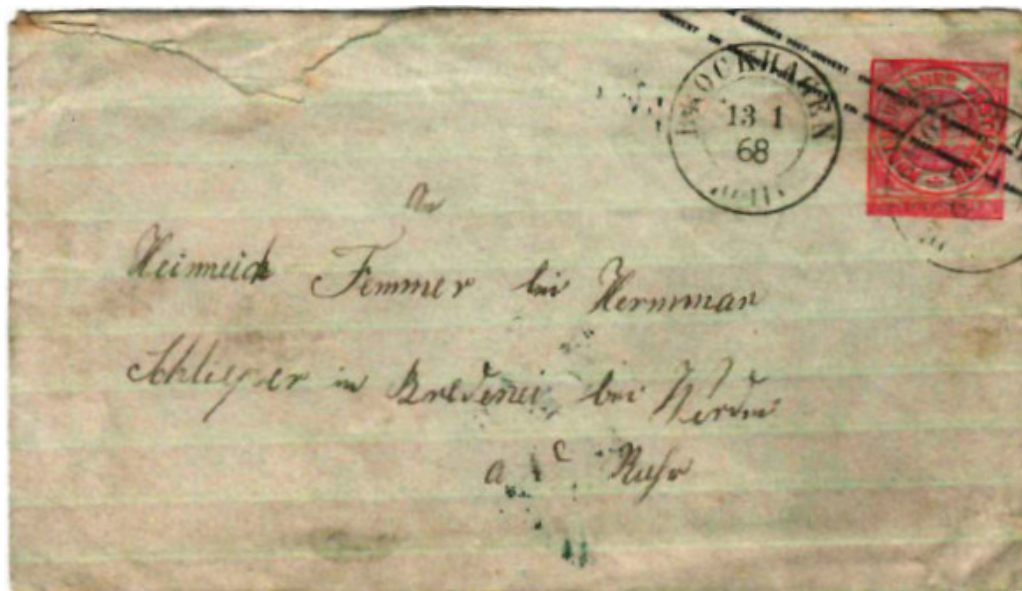 BROCKHAGEN
13 1
68
An
Heinrich Femmer bei Hermman
Schlieper in Bredenei bei Werden
a d Ruhr